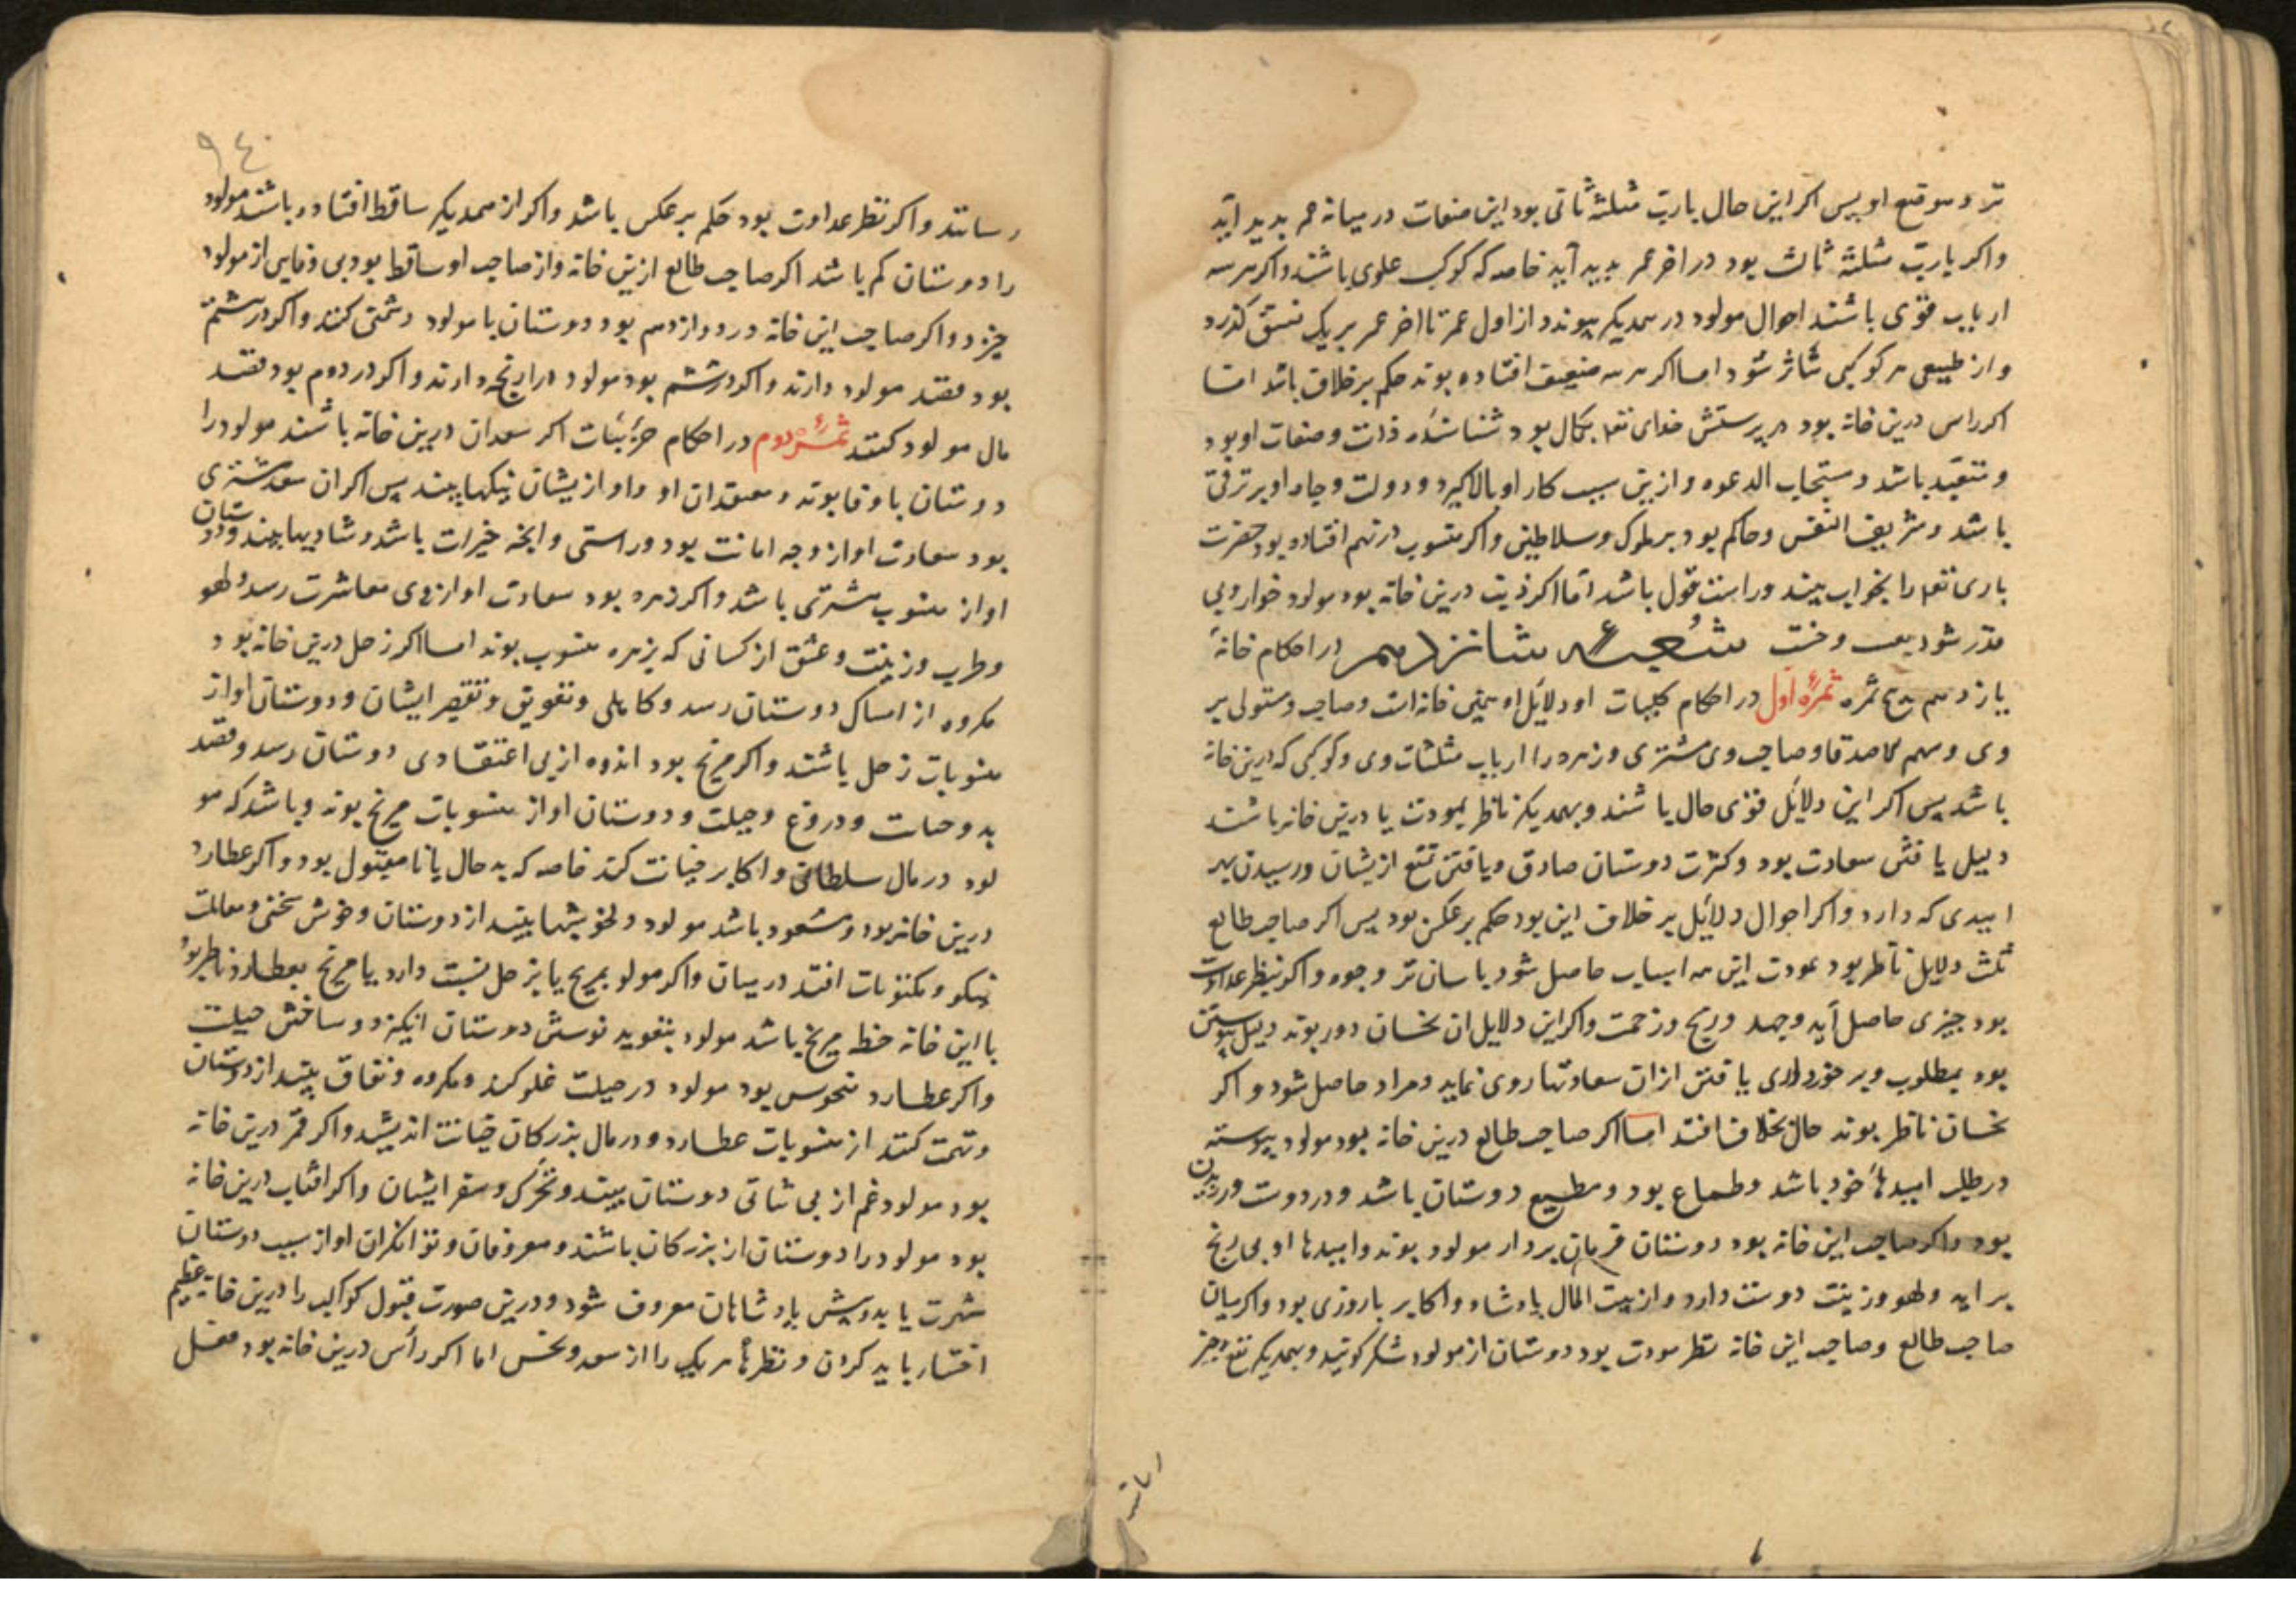 تر و موقع او پس اکر این حال بارب مثلثهٔ ثانی بود این صفات در میانه عمر بدید آید
واکر یارب مثلثه ثالث بود در اخر عمر بدید آید خاصه که کوکب علوی باشند واکر هر سه
ارباب قوی باشند احوال مولود در همدیکر پیوندد از اول عمر تا اخر عمر بر یک نسق کذرد
واز طبیعی هر کوکبی متأثر شود اما اکر هر سه ضعیف افتاده بوند حکم بر خلاف باشد اما
اکر راس درین خانه بود در پرستش خدای تعم بکمال بود شناسنده ذات و صفات او بود
و متعبّد باشد و مستجاب الدعوه و ازین سبب کار او بالا کیرد و دولت و جاه او بر ترقی
باشد و شریف النفس و حاکم بود بر ملوک و سلاطین واکر منسوب در نهم افتاده بود حضرت
باری تعم را بخواب بیند و راست قول باشد امّا اکر ذنب درین خانه بود مولود خوار و بی
قدر شود شعبه شانزدهم در احکام خانهٔ
یازدهم ثمره ثمرهٔ اول در احکام کلیات او دلایل او همین خانه است و صاحب و مستولی بر
وی و سهم الاصدقا و صاحب وی مشتری و زهره را ارباب مثلثات وی و کوکبی که درین خانه
باشد پس اکر این دلایل قوی حال باشند و بهمدیکر ناظر بمودت یا درین خانه باشند
دلیل یافتن سعادت بود و کثرت دوستان صادق و یافتن تمتع ازیشان و رسیدن بهر
امیدی که دارد واکر احوال دلایل بر خلاف این بود حکم بر عکس بود پس اکر صاحب طالع
ثلث دلایل ناظر بود بمودت این همه اسباب حاصل شود باسان تر وجوه واکر بنظر عداوت
بود چیزی حاصل آید و جهد و رنج و زحمت واکر این دلایل از نحسان دور بوند دلیل پیوستن
بود بمطلوب و بر خورداری یافتن ازان سعادتها روی نماید و مراد حاصل شود و اکر
نحسان ناظر بوند حال بخلاف افتد اما اکر صاحب طالع درین خانه بود مولود پیوسته
در طلب امیدهاء خود باشد و طماع بود و مطیع دوستان باشد و در دوست
بود واکر صاحب این خانه بود دوستان فرمان بردار مولود بوند و امیدها او بی رنج
بر اید و لهو و زینت دوست دارد و از بیت المال پادشاه و اکابر با روزی بود واکر میان
صاحب طالع و صاحب این خانه نظر مودت بود دوستان از مولود شکر کویند و بهمدیکر نفع و خیر
اما نند
۹٤۰
رسانند واکر نظر عداوت بود حکم بر عکس باشد واکر از همدیکر ساقط افتاده باشند مولود
را دوستان کم باشد اکر صاحب طالع ازین خانه و از صاحب او ساقط بود بی وفایی از مولود
خیزد و اکر صاحب این خانه در دوازدهم بود دوستان با مولود دشمنی کنند واکر در هشتم
بود قصد مولود دارند واکر در ششم بود مولود را رنجه دارند و اکر در دوم بود قصد
مال مولود کنند ثمرهٔ دوم در احکام جزئیات اکر سعدان درین خانه باشند مولود را
دوستان با وفا بوند و معتقدان او و او ازیشان نیکیها بیند پس اکر ان سعد مشتری
بود سعادت او از وجه امانت بود و راستی و انچه خیرات باشد و شادیها بیند و دوستان
او از منسوب مشتری باشد واکر زهره بود سعادت او از روی معاشرت رسد و لهو
و طرب و زینت و عشق از کسانی که بزهره منسوب بوند اما اکر زحل درین خانه بود
مکروه از امساک دوستان رسد و کاهلی و تعویق و تقصیر ایشان و دوستان او از
منسوبات زحل باشند واکر مریخ بود اندوه از بی اعتقادی دوستان رسد و قصد
بد و دروغ و حیلت و دوستان او از منسوبات مریخ بوند و باشد که مو
لود در مال سلطان و اکابر خیانت کند خاصه که بد حال یا نا مقبول بود و اکر عطارد
درین خانه بود و مسعود باشد مولود دلخوشیها بیند از دوستان و خوش سخنی و معاملت
نیکو و مکتوبات افتد در میان واکر مولود بمریخ یا بزحل نسبت دارد یا مریخ بعطارد ناظر بود
یا این خانه حظ مریخ باشد مولود بتعوید نوشتن دوستان انکیزد و ساختن حیلت
واکر عطارد منحوس بود مولود در حیلت غلو کند و مکروه و نفاق بیند از دوستان
و تهمت کنند از منسوبات عطارد و در مال بزرکان خیانت اندیشد واکر قمر درین خانه
بود مولود غم از بی ثباتی دوستان بیند و تحرک و سفر ایشان واکر افتاب درین خانه
بود مولود را دوستان از بزرکان باشند و معروفان و توانکران او از سبب دوستان
شهرت یابد و پیش پادشاهان معروف شود و درین صورت قبول کواکب را درین خانه عظیم
اعتبار باید کردن و نظرهاء هر یک را از سعد و نحس اما اکر رأس درین خانه بود فضل